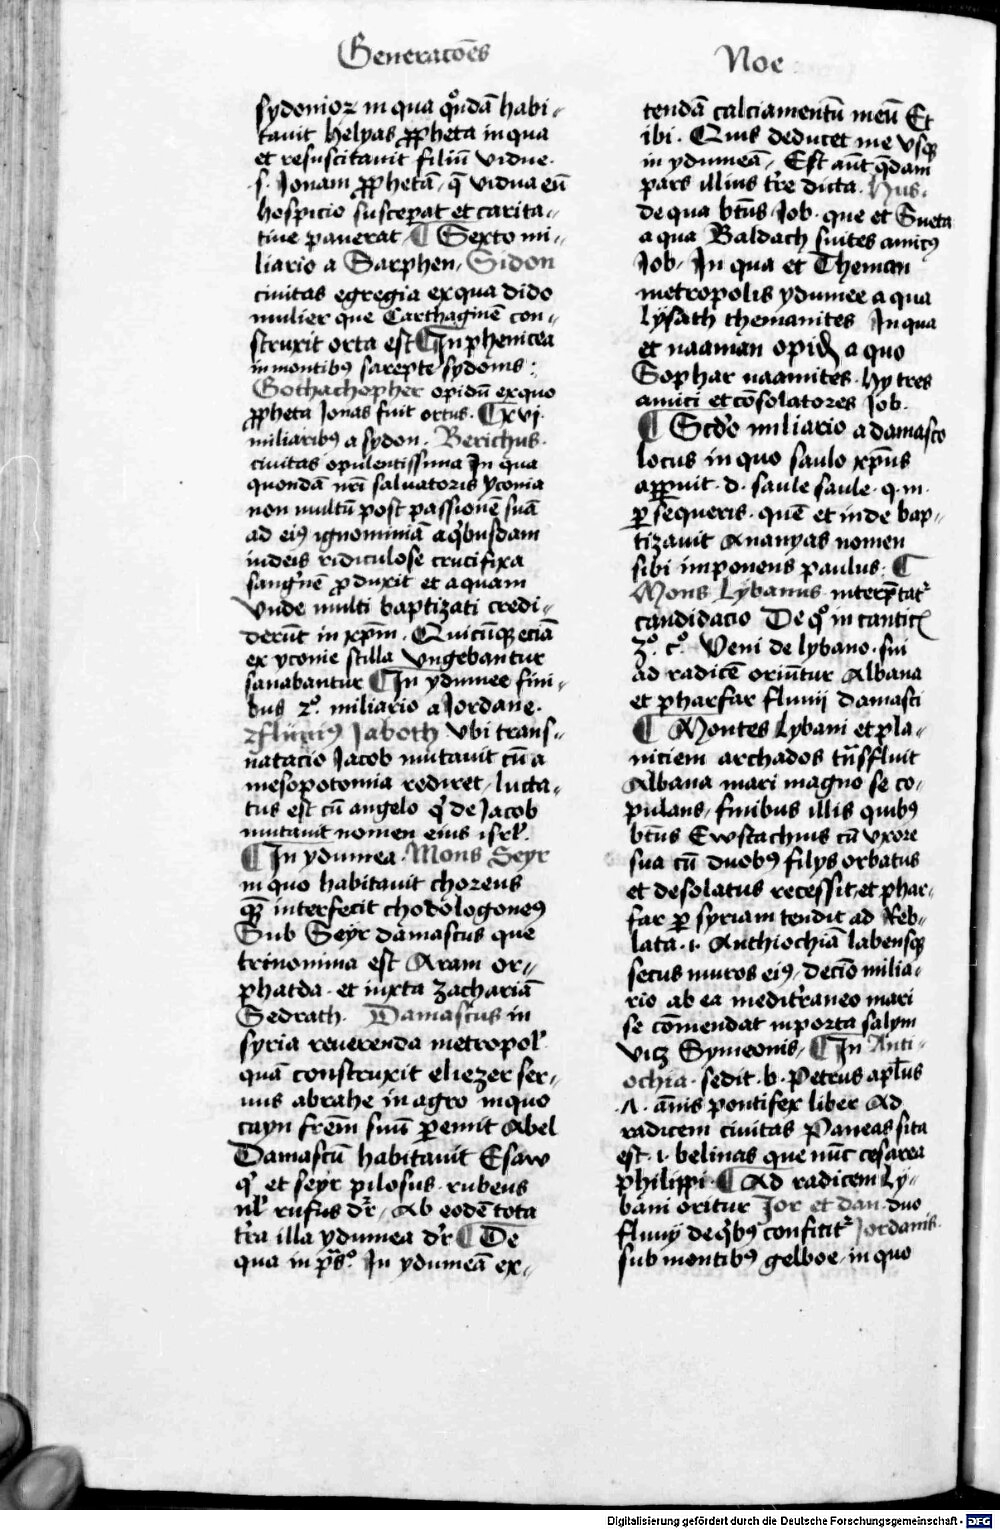 Generacōēs
Noe
sydonioꝝ in qua qͦndā habi⸗
tauit helyas ꝓpheta in qua
et resuscitauit filiū vidue·
·s· Jonam ꝓphetā, q̄ vidua eū
hospicio susceperat et carita⸗
tiue pauerat ¶ Sexto mi⸗
liario a Sarphen, Sidon
ciuitas egregia ex qua dido
mulier que Carthaginē con⸗
struxit orta est ¶ In phenicea
in montibꝰ sarepte sydonis :
Gothachopher opidū ex quo
ꝓpheta Jonas fuit ortus. ¶ xvj
miliaribꝰ a sydon. Berichus.
ciuitas opulentissima In qua
quondā nr̄i saluatoris yconia
non multū post passionē suā
ad eiꝰ ignominiā a qͥbusdam
iudeis ridiculose crucifixa
sangͥnē ꝓduxit et aquam
vnde multi baptizati credi⸗
derūt in xp̄m. Quicūqꝫ eciā
ex yconie stilla vngebantur
sanabantur ¶ In ydumee fini⸗
bus 2ͦ. miliario a Jordane.
fluuiꝰ Jaboth vbi trans⸗
natacio Jacob mutauit cū a
mesopotomia rediret, lucta⸗
tus est cū angelo qͥ de Jacob
mutauit nomen eius isrl̄.
¶ In ydumea. Mons Seyr
in quo habitauit choreus
quē interfecit chodologoneꝰ
Sub Seyr damascus que
trinomina est Aram or⸗
phatda. et iuxta zachariā
Sedrath. Damascus in
syria reuerenda metropol̄
quā construxit eliezer ser⸗
uus abrahe in agro in quo
cayn frēm suū ꝑemit Abel
Damascū habitauit Esaw
qͥ et seyr pilosus. rubeus
ul̄ rufus dr̄, Ab eodē tota
tr̄a illa ydumea dr̄ ¶ De
qua in psͦ. In ydumeā ex⸗
tendā calciamentū meū Et
ibi. Quis deducet me vsqꝫ
in ydumeā, Est aūt q̄dam
pars illius tr̄e dicta. Hus.
de qua bt̄us Job. que et Sueta
a qua Baldach suites amicꝰ
Job, In qua et Theman
metropolis ydumee a qua
lysath themanites In qua
et naaman opid̄ a quo
Sophar naamites. hy tres
amici et cōsolatores Job.
¶ Scd̄o miliario a damasco
locus in quo saulo xp̄us
apparuit. d. saule saule. q. m.
ꝑsequeris. quē et inde bap⸗
tizauit Ananyas nomen
sibi imponens paulus. ¶
Mons Lybanus interp̄tatͬ
candidacio De qͦ in cantic̄
3ͦ. cͦ. Veni de lybano. sui
ad radicē oriūtur Albana
et pharfar fluuij damasci
¶ Montes Lybani et pla⸗
niciem archados tn̄sfluit
Albana mari magno se co⸗
pulans, finibus illis quibꝰ
bt̄us Ewstachius cū vxore
sua cū duobꝰ filys orbatus
et desolatus recessit, et phar⸗
far ꝑ syriam tendit ad Reb⸗
lata. i. Anthiochiā labensqꝫ
secus muros eiꝰ, decīo milia⸗
rio ab ea medit̄raneo mari
se cōmendat in porta salym
vicꝫ Symeonis, ¶ In Anti⸗
ochia. sedit. b. Petrus apl̄us
.ʌ. ānis pontifex liber Ad
radicem ciuitas Paneas sita
est. i. belinas que nūc cesarea
philippi. ¶ Ad radicem Ly⸗
bani oritur Jor et dan. duo
fluuij de qͥbꝰ conficitͬ Jordanis
sub montibꝰ gelboe, in quo
Digitalisierung gefördert durch die Deutsche Forschungsgemeinschaft - DFG